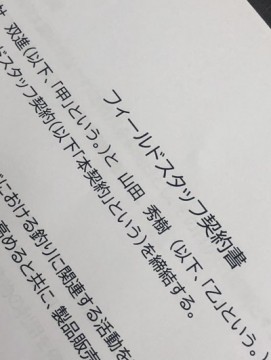 フィールドスタッフ契約書
双進(以下、「甲」という。)と 山田 秀樹 (以下、「乙」という。
ドスタッフ契約(以下「本契約」という)を締結する。
における釣りに関連する活動を
高めると共に、製品販売